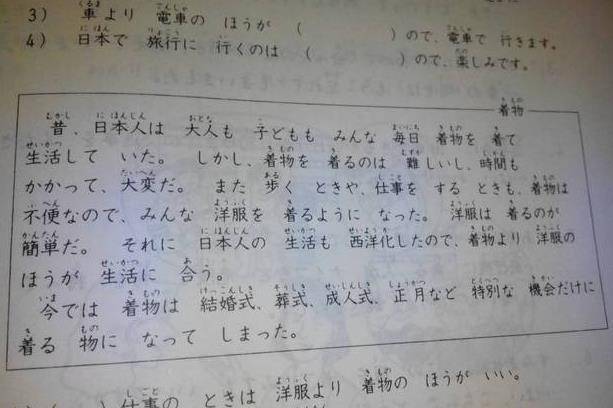 3) 車より 電車の ほうが ( )ので、電車で 行きます。
4) 日本で 旅行に 行くのは ( )ので、楽しみです。
着物
昔、日本人は 大人も 子どもも みんな 毎日 着物を 着て
生活して いた。 しかし、着物を 着るのは 難しいし、時間も
かかって、大変だ。 また 歩く ときや、仕事を する ときも、着物は
不便なので、みんな 洋服を 着るように なった。 洋服は 着るのが
簡単だ。 それに 日本人の 生活も 西洋化したので、着物より 洋服の
ほうが 生活に 合う。
今では 着物は 結婚式、葬式、成人式、正月など 特別な 機会だけに
着る 物に なって しまった。
)仕事の ときは 洋服より 着物の ほうが いい。